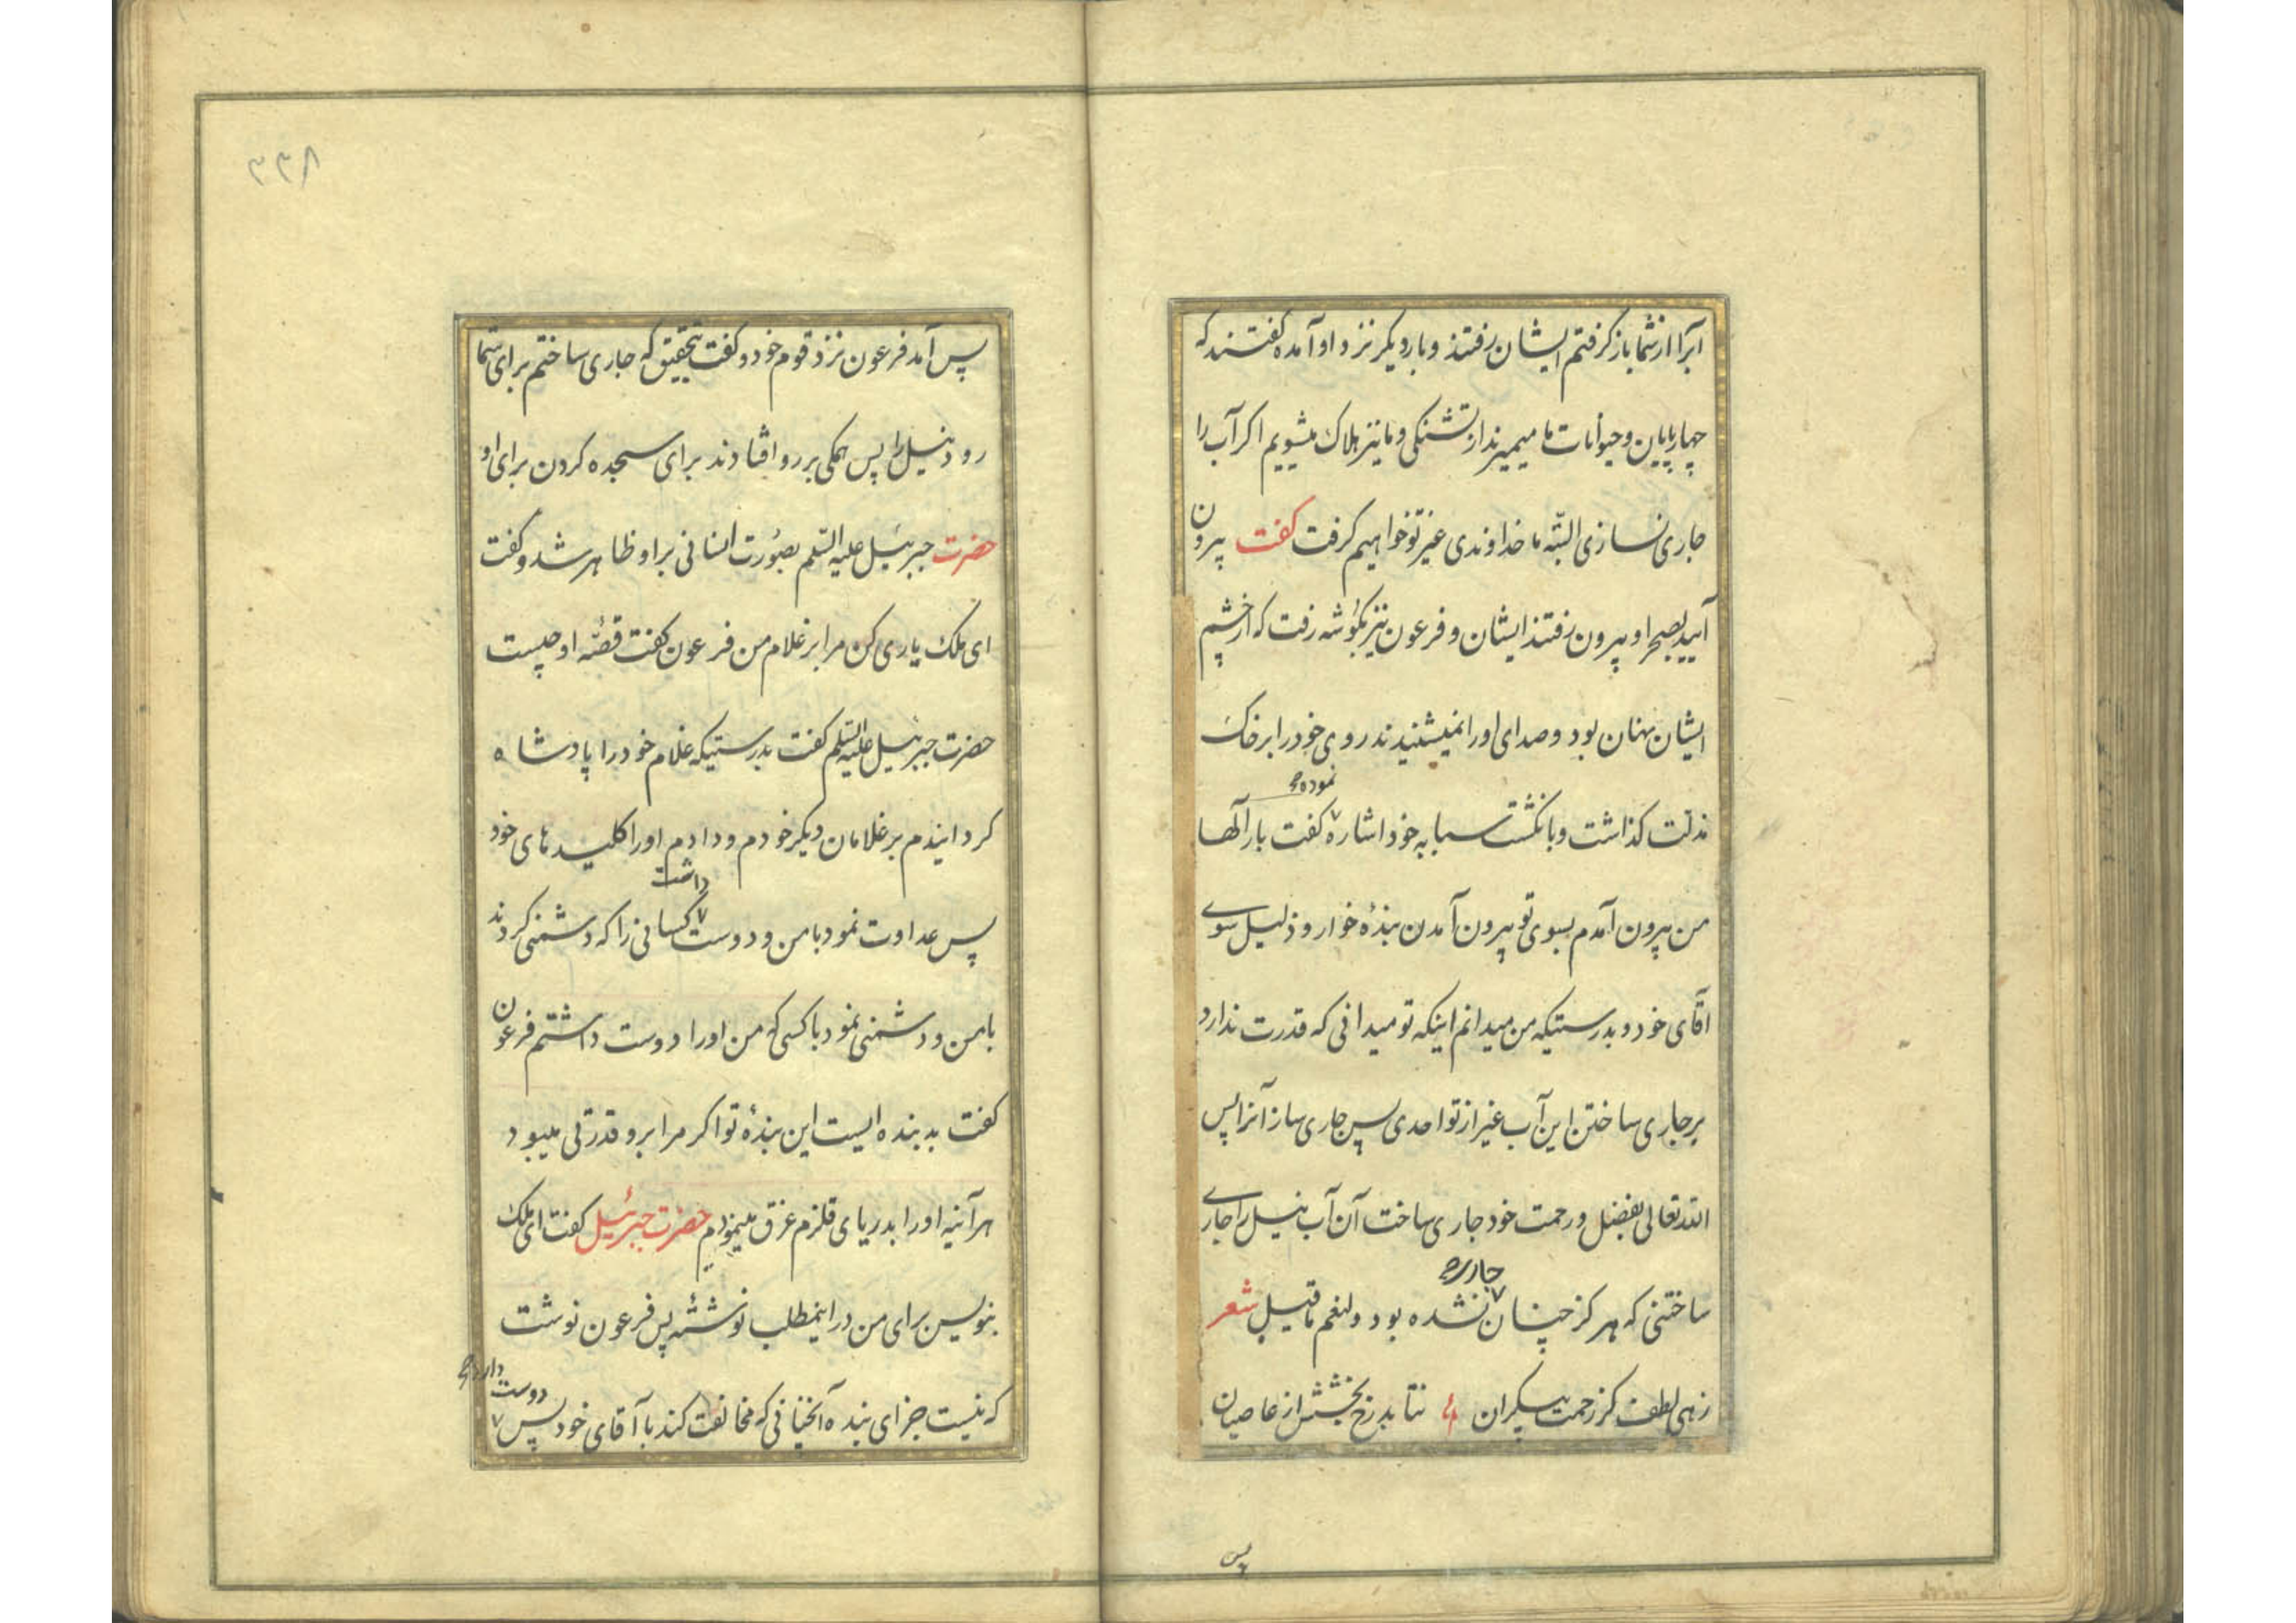 آبرا از شما باز گرفتم ایشان رفتند و بار دیگر نزد او آمده گفتند که
چهارپایان و حیوانات ما میمیرند از تشنگی و ما نیز هلاک میشویم اگر آب را
جاری نسازی البتّه ما خداوندی غیر تو خواهیم گرفت گفت بیرون
آیید بصحرا و بیرون رفتند ایشان و فرعون نیز بگوشه رفت که از چشم
ایشان پنهان بود و صدای او را نمیشنیدند روی خود را بر خاک
مذلّت گذاشت و بانگشت سبابه خود اشاره نموده گفت بار آلها
من بیرون آمدم بسوی تو بیرون آمدن بندهٔ خوار و ذلیل سوی
آقای خود و بدرستیکه من میدانم اینکه تو میدانی که قدرت ندارد
بر جاری ساختن این آب غیر از تو احدی پس جاری ساز آنرا پس
الله تعالی بفضل و رحمت خود جاری ساخت آن آب نیل را جاری
ساختنی که هرگز چنان جاری نشده بود و لنعم ما قیل شعر
زهی لطف کز رحمت بیکران نتابد رخ بخشش از عاصیان
پس
۲۲۸
پس آمد فرعون نزد قوم خود و گفت بتحقیق که جاری ساختم برای شما
رود نیل را پس همگی بر رو افتادند برای سجده کردن برای او
حضرت جبرئیل علیه السّلم بصورت انسانی بر او ظاهر شد و گفت
ای ملک یاری کن مرا بر غلام من فرعون گفت قصّهٔ او چیست
حضرت جبرئیل علیه السّلم گفت بدرستیکه غلام خود را پادشاه
گردانیدم بر غلامان دیگر خودم و دادم او را کلیدهای خود
پس عداوت نمود با من و دوست داشت کسانی را که دشمنی کردند
با من و دشمنی نمود با کسی که من او را دوست داشتم فرعون
گفت بد بنده ایست این بندهٔ تو اگر مرا بر او قدرتی میبود
هر آینه او را بدریای قلزم غرق مینمودم حضرت جبرئیل گفت ای ملک
بنویس برای من در اینمطلب نوشتهٔ پس فرعون نوشت
که نیست جزای بنده آنچنانی که مخالفت کند با آقای خود پس دوست دارد